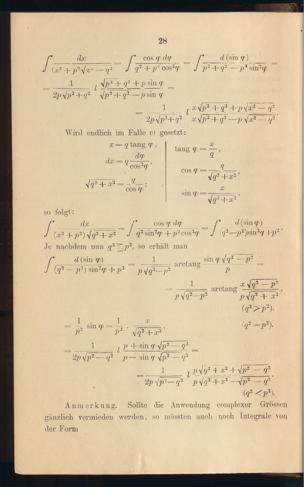 28
∫ dx / (x² + p²)√(x² − q²) = ∫ cos φ dφ / (q² + p² cos²φ) = ∫ d (sin φ) / (p² + q² − p² sin²φ) =
= 1 / (2p√(p² + q²)) l (√(p² + q²) + p sin φ) / (√(p² + q²) − p sin φ) =
= 1 / (2p√(p² + q²)) l (x√(p² + q²) + p√(x² − q²)) / (x√(p² + q²) − p√(x² − q²))
Wird endlich im Falle c) gesetzt:
x = q tang φ, tang φ = x / q,
dx = q dφ / cos²φ, cos φ = q / √(q² + x²),
√(q² + x²) = q / cos φ; sin φ = x / √(q² + x²),
so folgt:
∫ dx / (x² + p²)√(q² + x²) = ∫ cos φ dφ / (q² sin²φ + p² cos²φ) = ∫ d (sin φ) / ((q² − p²) sin²φ + p²).
Je nachdem nun q² ⋛ p², so erhält man
∫ d (sin φ) / ((q² − p²) sin²φ + p²) = 1 / (p√(q² − p²)) arctang (sin φ √(q² − p²)) / p =
= 1 / (p√(q² − p²)) arctang (x√(q² − p²)) / (p√(q² + x²)),
(q² > p²).
= 1 / p² sin φ = 1 / p² · x / √(q² + x²), (q² = p²).
= 1 / (2p√(p² − q²)) l (p + sin φ √(p² − q²)) / (p − sin φ √(p² − q²)) =
= 1 / (2p√(p² − q²)) l (p√(q² + x²) + x√(p² − q²)) / (p√(q² + x²) − x√(p² − q²)).
(q² < p²).
Anmerkung. Sollte die Anwendung complexer Grössen
gänzlich vermieden werden, so müssten auch noch Integrale von
der Form